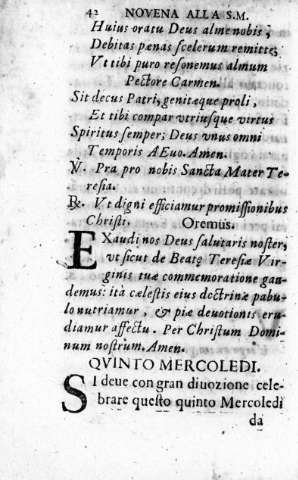 42 NOVENA ALLA S.M.
Huius oratu Deus alme nobis,
Debitas pænas scelerum remitte;
Vt tibi puro resonemus almum
Pectore Carmen.
Sit decus Patri, genitæque proli,
Et tibi compar vtriusque virtus
Spiritus semper; Deus vnus omni
Temporis AEuo. Amen.
℣. Pra pro nobis Sancta Mater Te-
resia.
℟. Vt digni efficiamur promissionibus
Christi. Oremus.
EXaudi nos Deus salutaris noster,
vt sicut de Beatę Teresiæ Vir-
ginis tuæ commemoratione gau-
demus: ità cælestis eius doctrinæ pabu-
lo nutriamur, & piæ deuotionis eru-
diamur affectu. Per Christum Domi-
num nostrum. Amen.
QVINTO MERCOLEDI.
SI deue con gran diuozione cele-
brare questo quinto Mercoledi
da